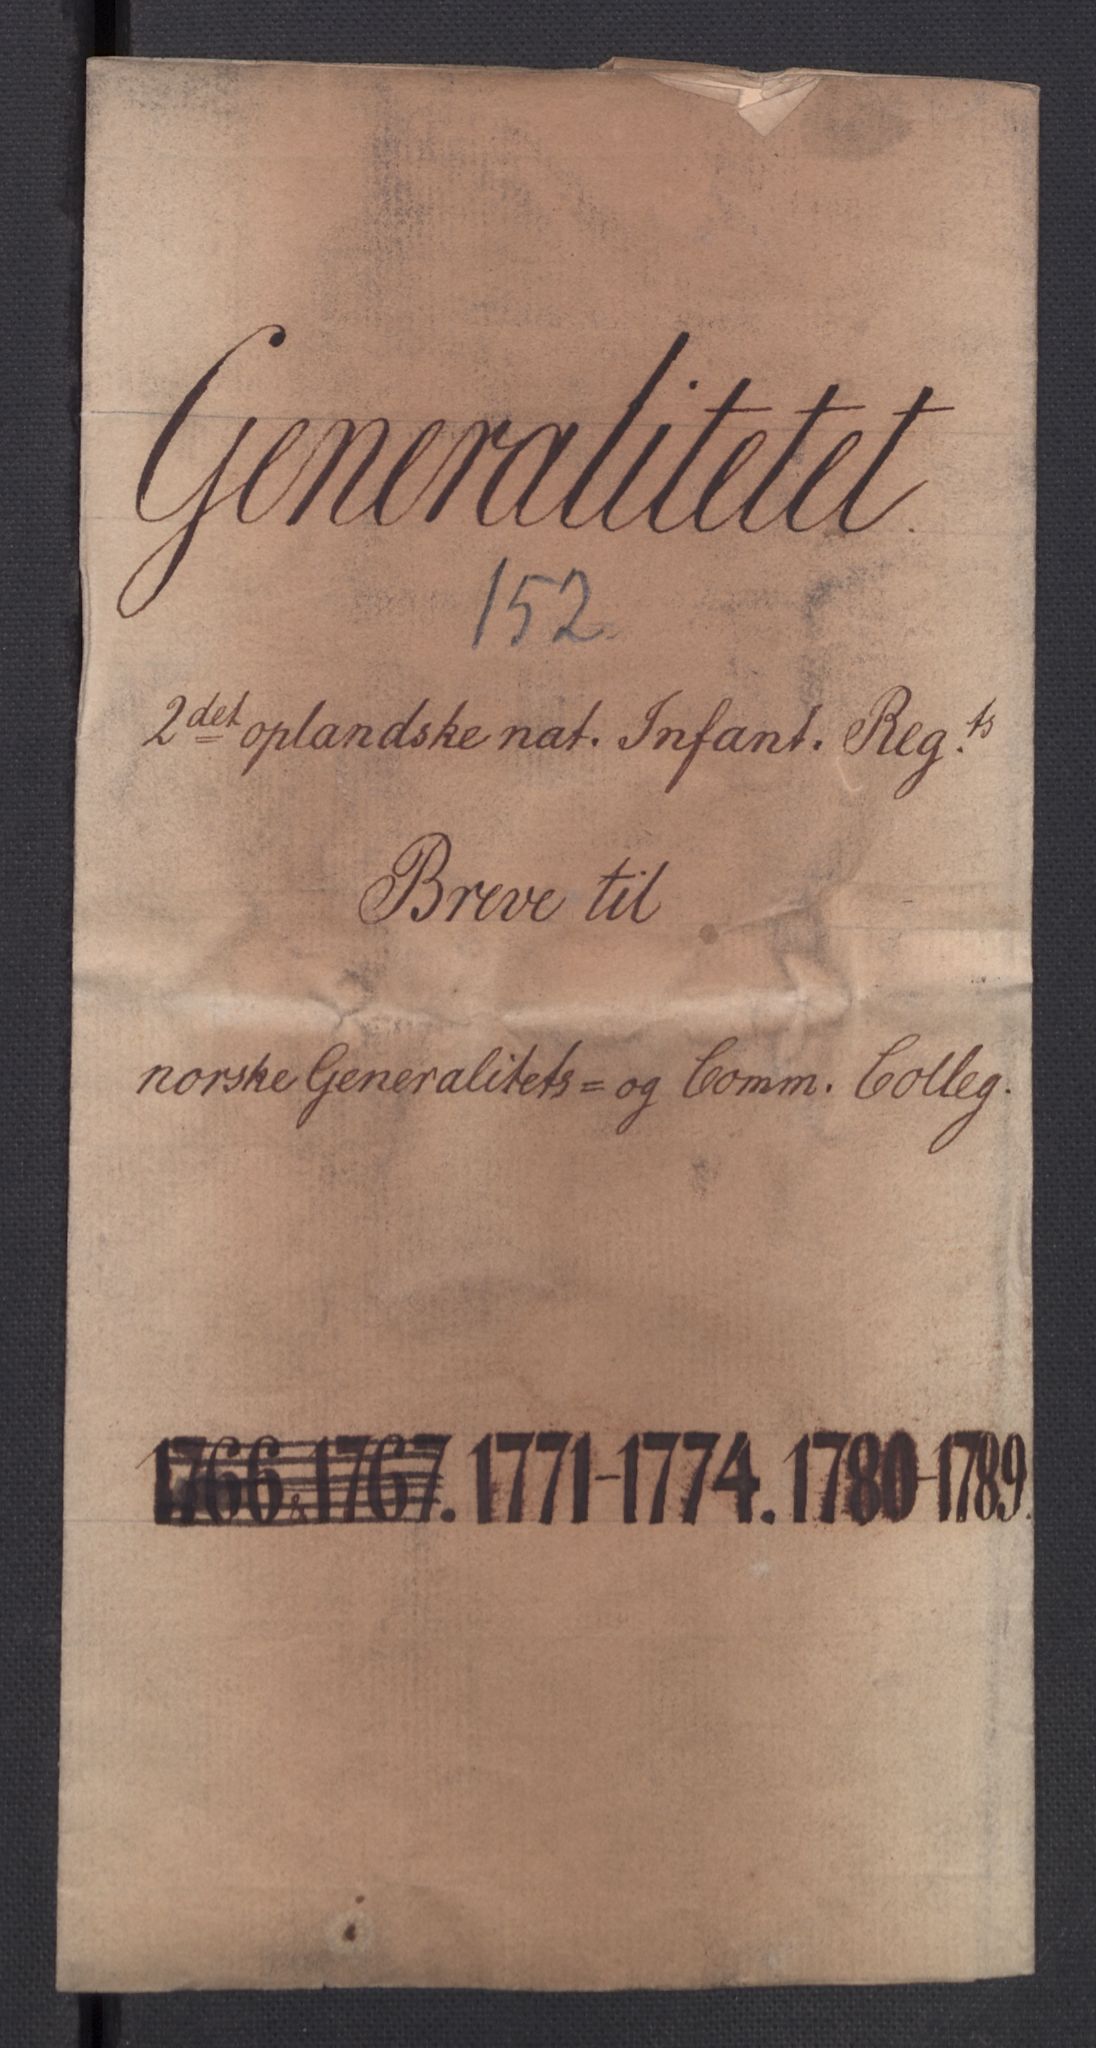 Generalitetet.
152.
2det oplandske nat. Infant. Reg.ts
Breve til
norske Generalitets= og Comm. Colleg.
1766 & 1767. 1771-1774. 1780-1789.